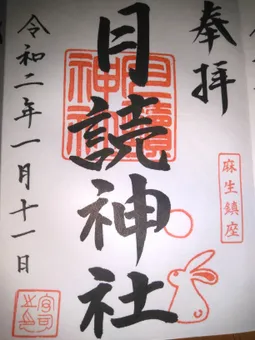 奉拝
麻生鎮座
月読神社
月讀
神社
令和二年一月十一日
宮司
之印